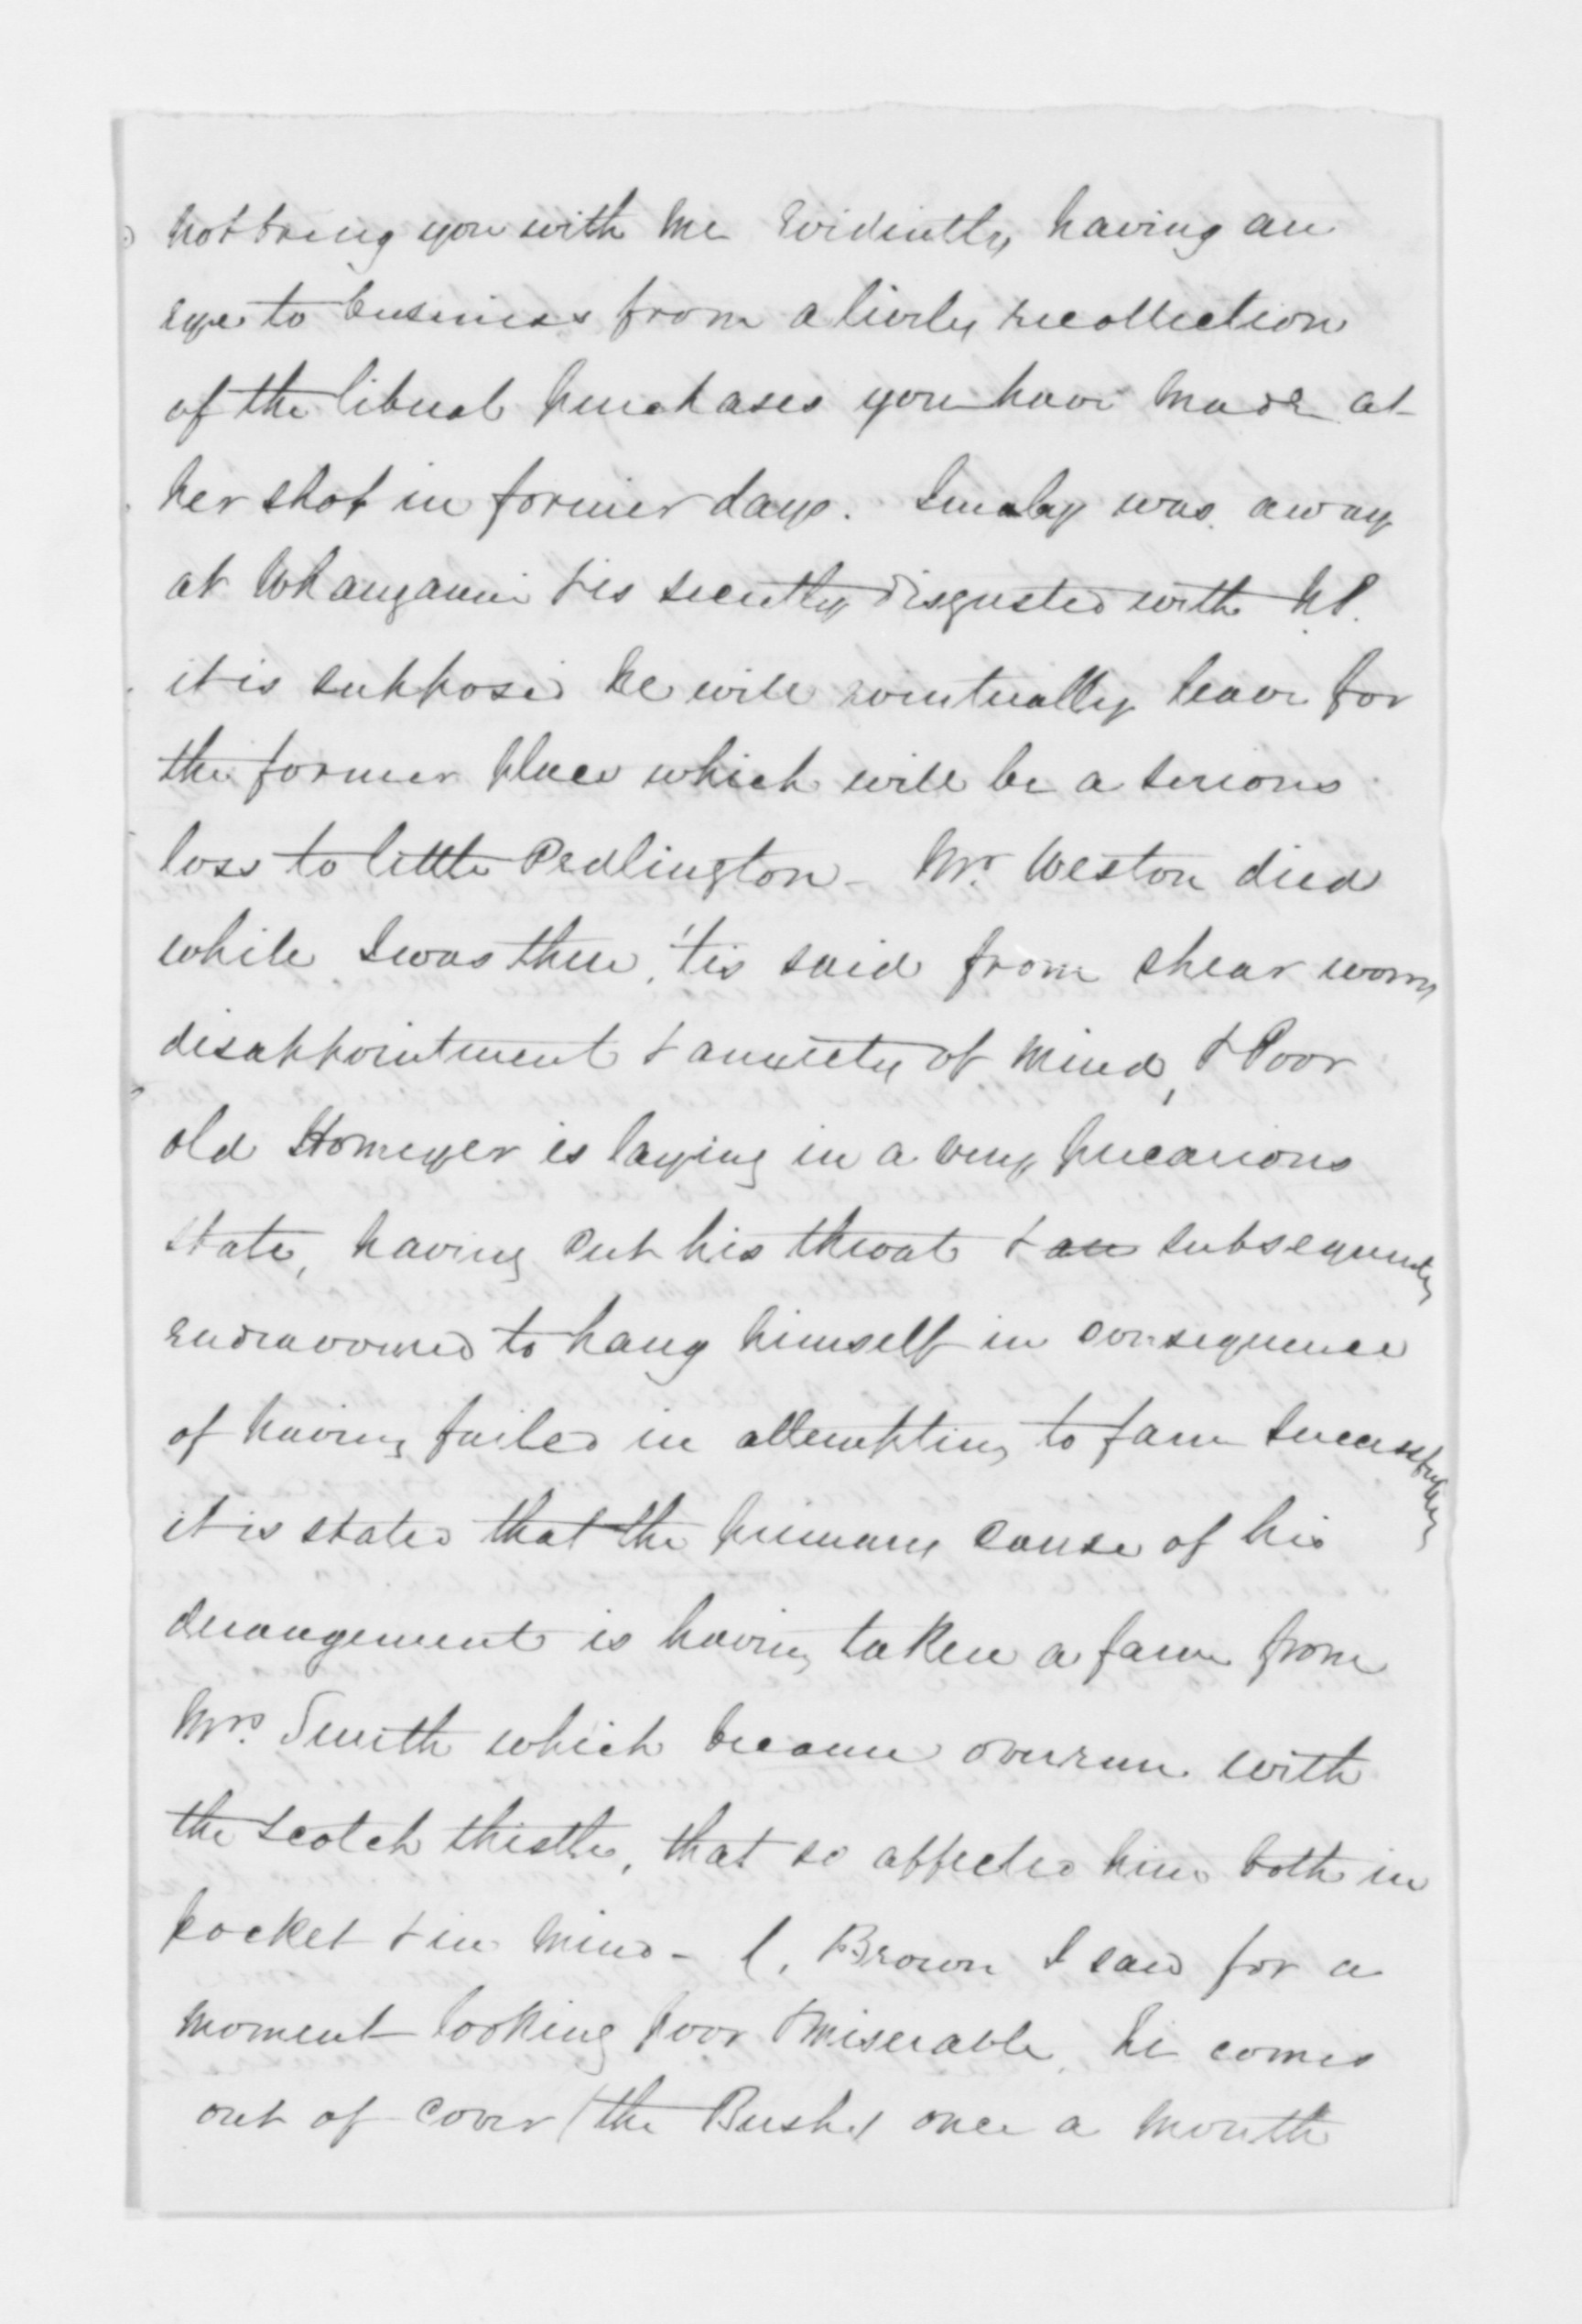 not bring you with me Evidently having an
eye to business from a lively recollection
of the liberal purchases you have made at
her shop in former days. was away
at Whanganui & is secretly disgusted with N.P.
it is supposed he will eventually leave for
the former place which will be a serious
loss to little Pedlington - Mr. Weston died
while I was there, 'tis said from shear worry
disappointment & anxiety of mind, & Poor
old is laying in a very precarious
state, having cut his throat & an subsequently
endeavoured to hang himself in consequence
of having failed in attempting to farm successfully
it is stated that the primary cause of his
derangement is having taken a farm from
Mrs. Smith which became overrun with
the scotch thistle, that so affected him both in
pocket & in mind - C. Brown I saw for a
moment looking poor & miserable, he comes
out of cover (the Bush) once a month